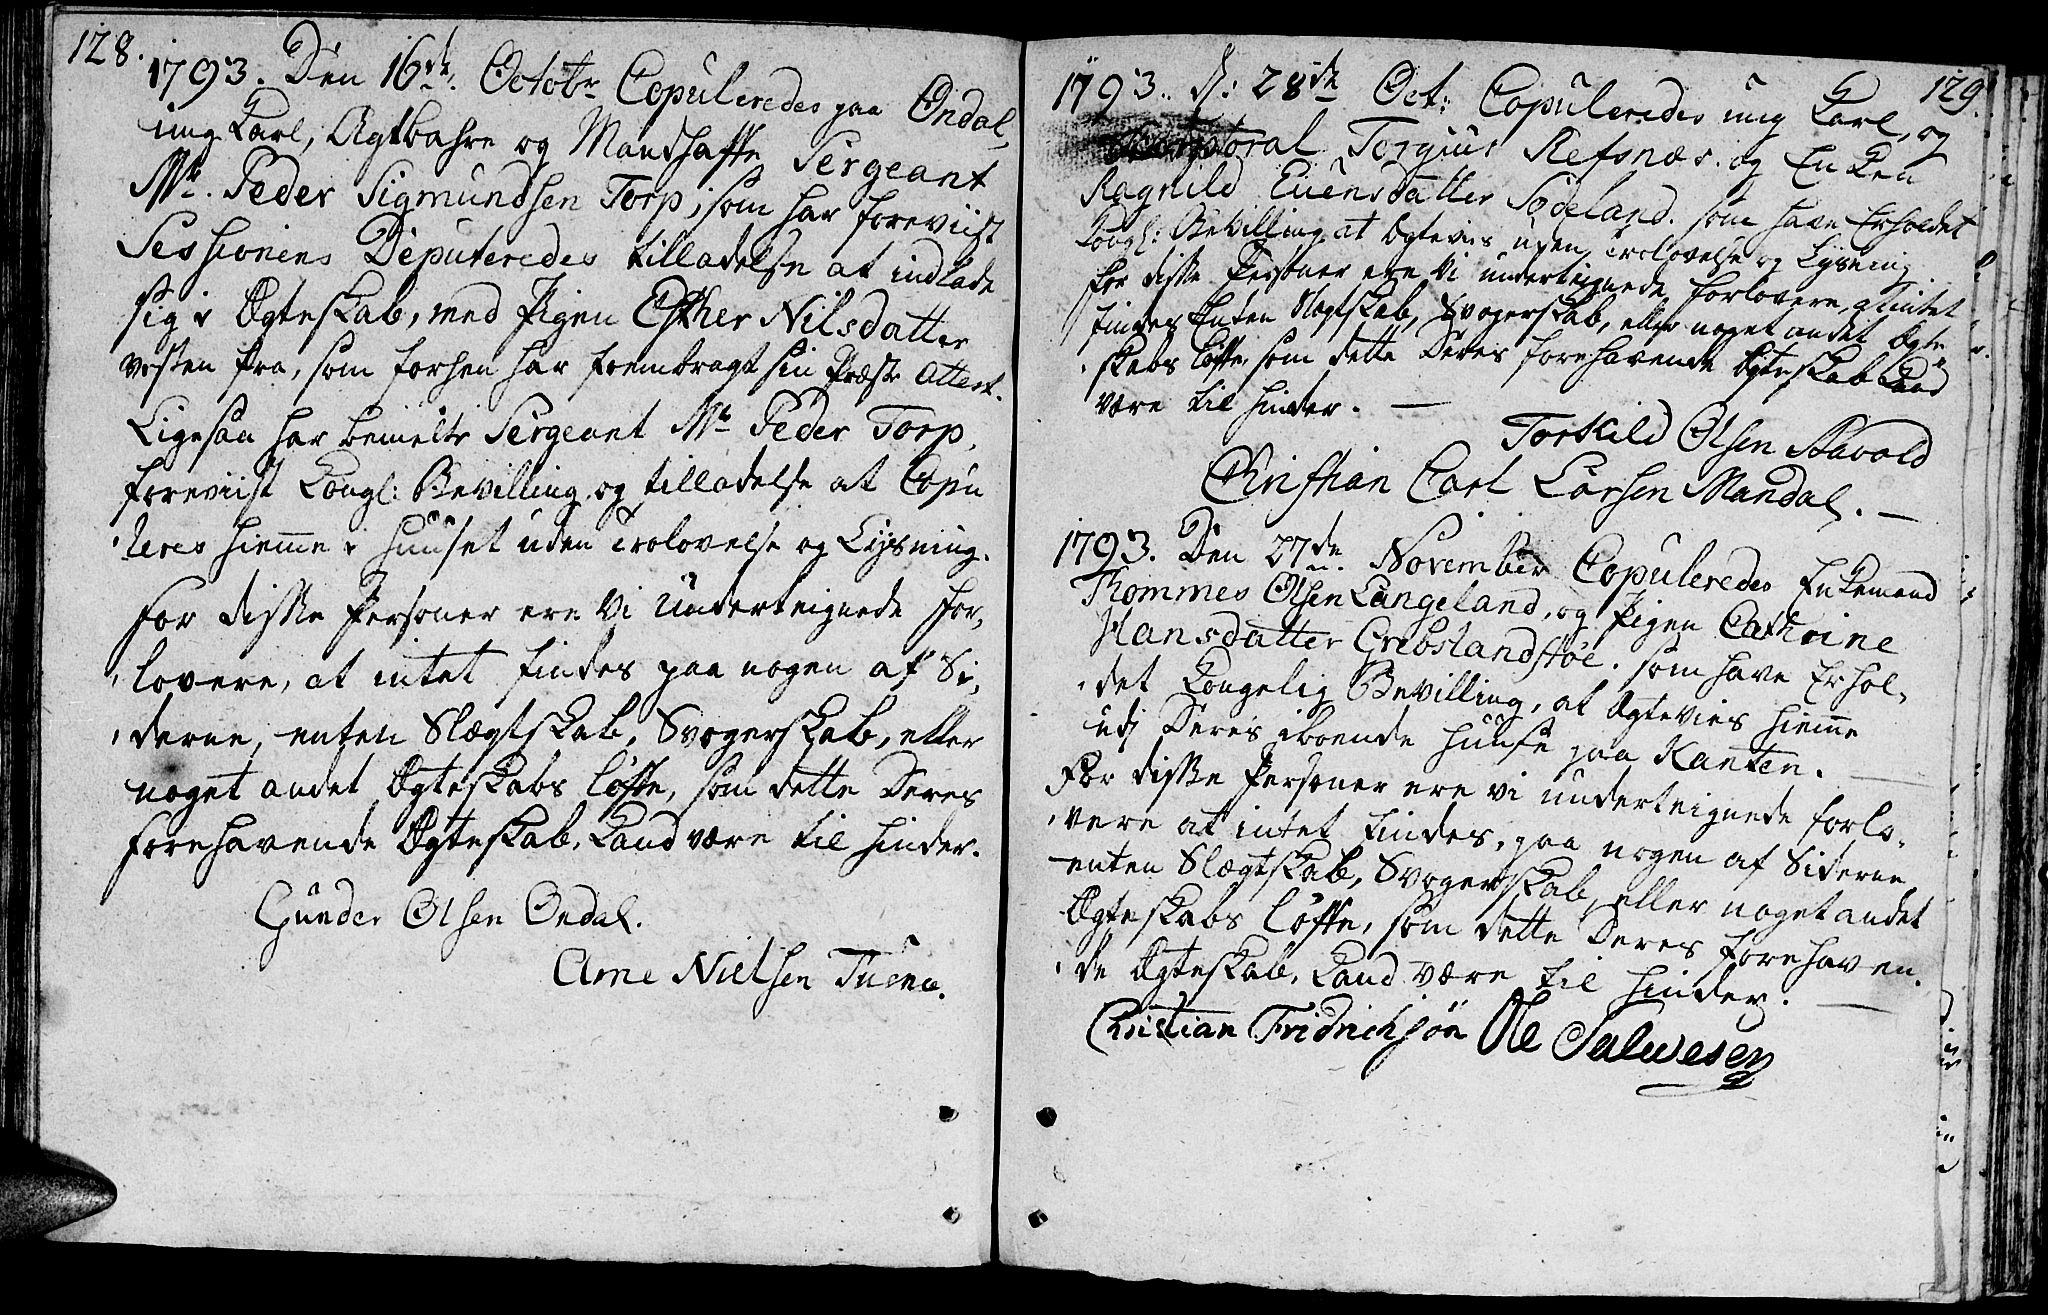 128.
1793. Den 16de Octobr Copuleredes paa Ondal,
ung Karl, Agtbahre og Mandhaffte Sergeant
Mr. Peder Sigmundsen Torp, som har foreviist
Sessionens Deputeredes tilladelse at indlade
sig i Ægteskab, med Pigen Esther Nilsdatter
vesten fra, som forhen har frembragt sin Præste Attest.
Ligesaa har bemelte Sergeant Mr Peder Torp,
foreviist Kongl: Bevilling og tilladelse at Copu
leres hieme i Huuset uden Trolovelse og Lysning.
For disse Personer ere Vi Underteignede For,
lovere, at intet findes paa nogen af Si,
derne, enten Slægtskab, Svogerskab, eller
noget andet Ægteskabs løffte, som dette Deres
forehavende Ægteskab, Kand være til Hinder.
Gunder Olsen Ondal.
Arne Nielsen Tuene.
129.
1793. D: 28de Oct: Copuleredes ung Karl, og
Corporal Tergius Refsnæs. og Enken
Ragnild Evensdatter Sødeland. som have Erholdet
Kongl: Bevilling at Ægtevies uden Trolovelse og Lysning
For disse Personer ere Vi underteignede Forlovere, at intet
findes Enten Slægtskab, Svogerskab, eller noget andet Ægte
skabs løfte, som dette Deres forehavende Ægteskab Kand
være til Hinder. —
Torkild Olsen Aavold
Christian Carl Larsen Mandal. —
1793. Den 27de November Copuleredes Enkemand
Thommes Olsen Langeland, og Pigen Cathrine
Hansdatter Gribslandstøe. som have Erhol,
det Kongelig Bevilling, at Ægtevies hieme
udi Deres iboende Huuse paa Kanten. —
For disse Personer ere vi underteignede forlo,
vere at intet findes, paa nogen af Siderne
enten Slægtskab, Svogerskab, eller noget andet
Ægteskabs løffte, som dette Deres forehaven,
de Ægteskab, Kand være til Hinder. —
Christian Fridrichsøn Ole Salwesen